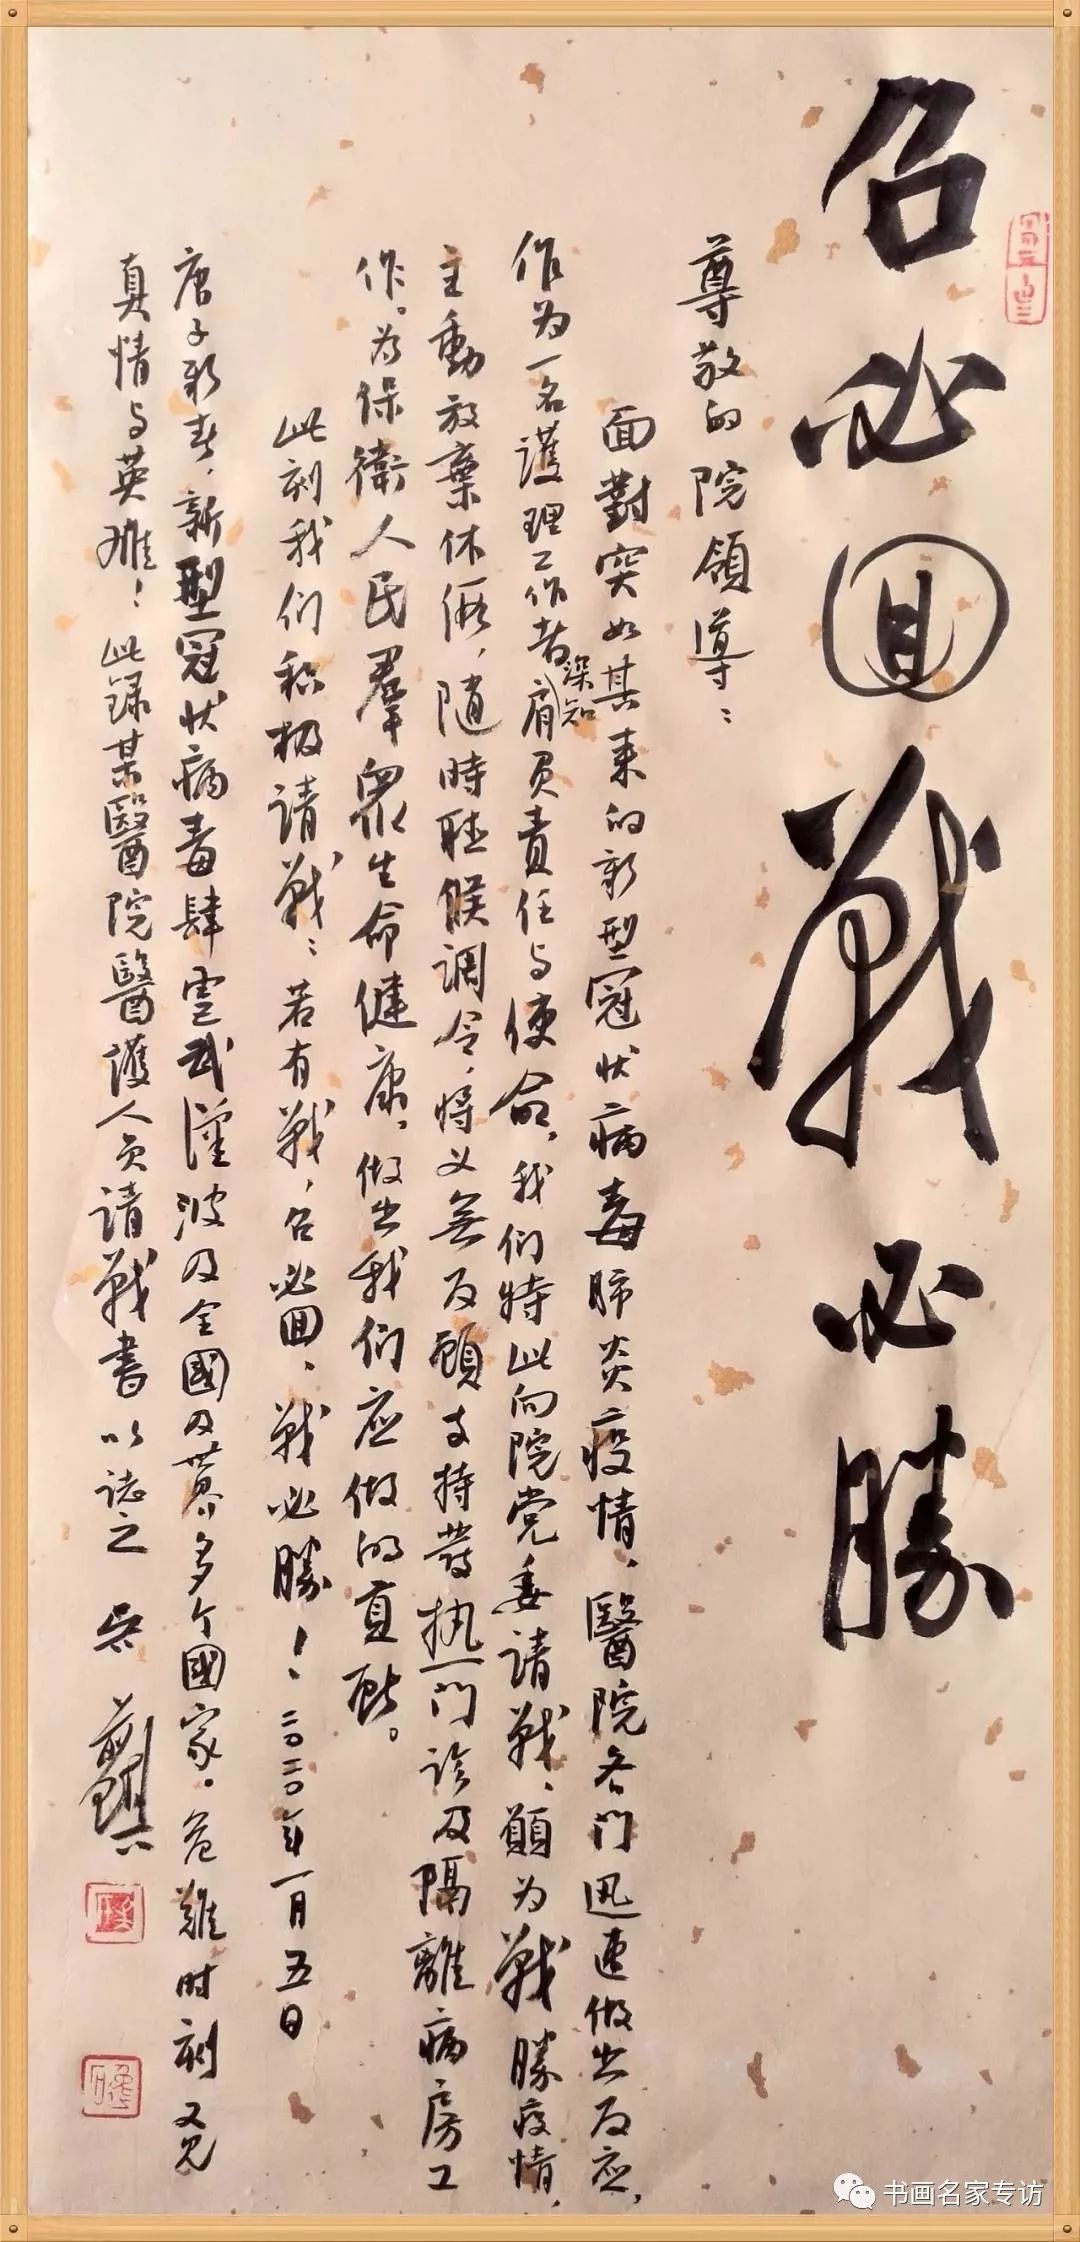 召必回戰必勝
尊敬的院領導：
面對突如其来的新型冠状病毒肺炎疫情，醫院各门迅速做出反应，
作为一名護理工作者深知肩負責任与使命，我们特此向院党委請戰、願为戰勝疫情，
主動放棄休假，随時聽候調令，将义無反顧支持發热门診及隔離病房工
作。为保衛人民羣衆生命健康，做出我们应做的貢献。
此刻我们积极請戰：若有戰，召必回、戰必勝！二〇二〇年一月五日
庚子新春，新型冠状病毒肆虐武漢波及全國及世界多个國家。危難时刻又見
真情与英雄！此録某醫院醫護人员請戰書以誌之
书画名家专访